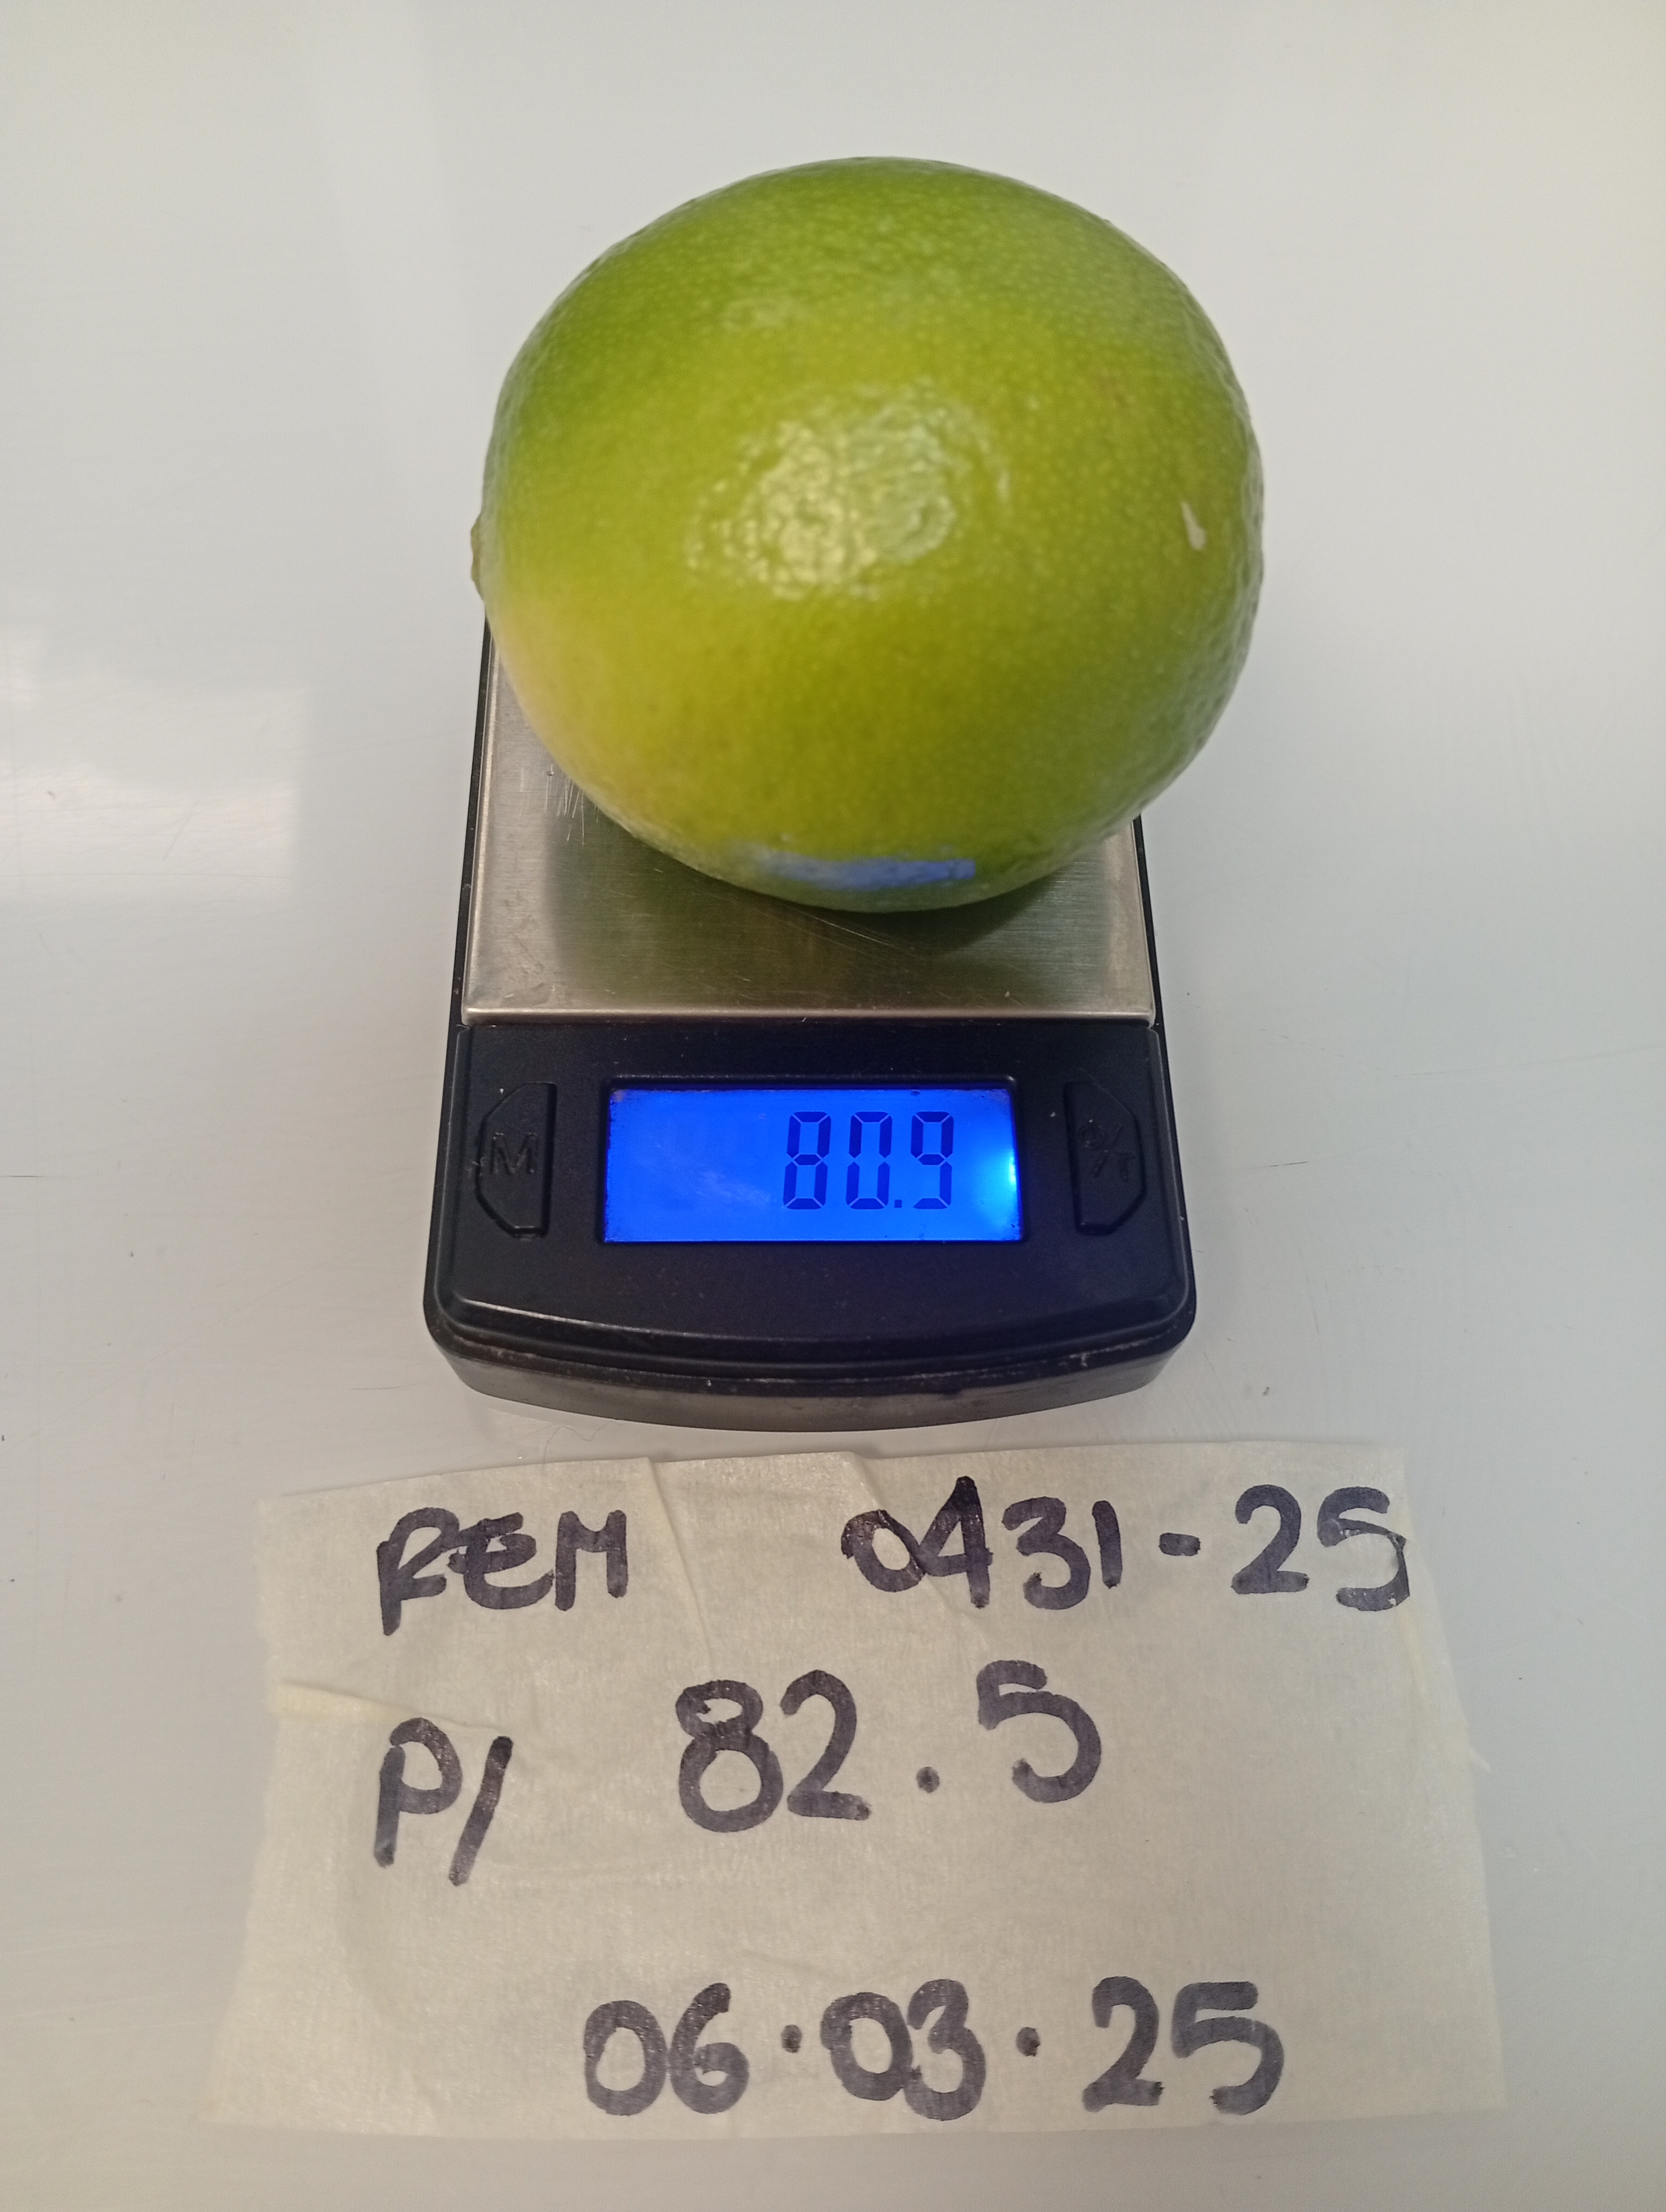 80.9
M
O/T
REM 0431-25
P/ 82.5
06.03.25